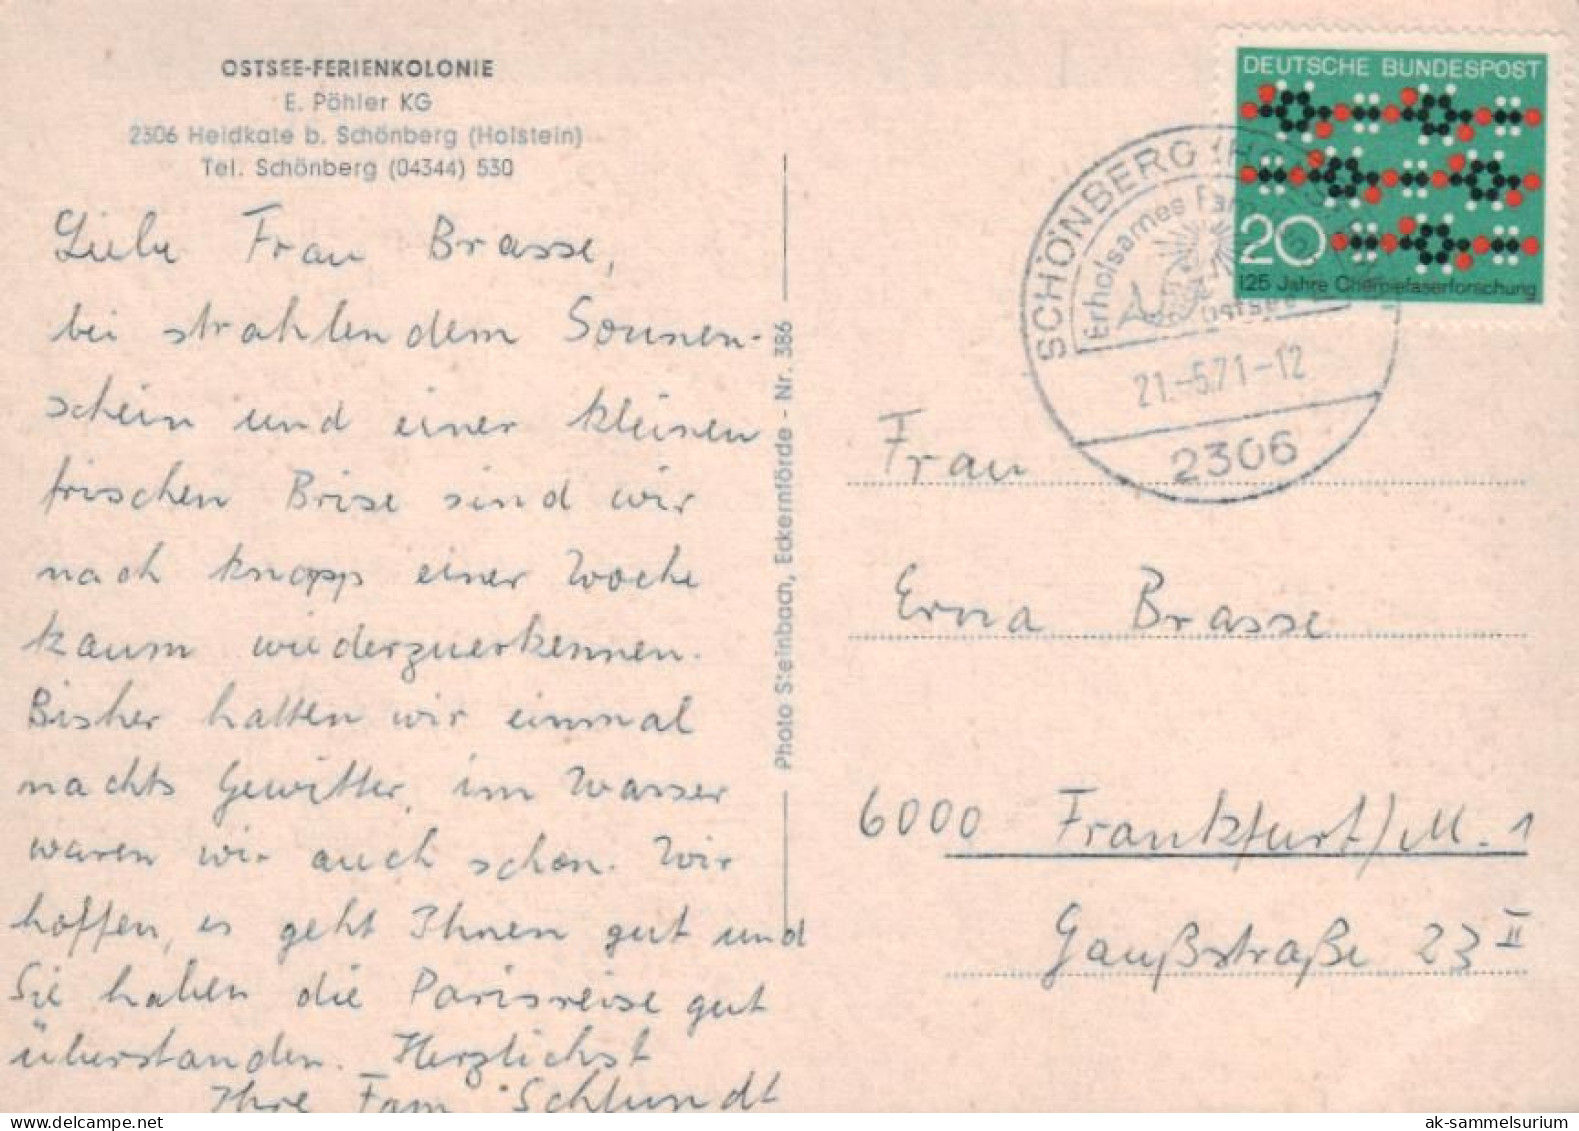 OSTSEE-FERIENKOLONIE
E. Pöhler KG
2306 Heidkate b. Schönberg (Holstein)
Tel. Schönberg (04344) 530
Liebe Frau Brasse,
bei strahlendem Sonnen-
schein und einer kleinen
frischen Brise sind wir
nach knapp einer Woche
kaum wiederzuerkennen.
Bisher hatten wir einmal
nachts Gewitter, im Wasser
waren wir auch schon. Wir
hoffen, es geht Ihnen gut und
Sie haben die Parisreise gut
überstanden. Herzlichst
Ihre Fam. Schlundt
Photo Steinbach, Eckernförde - Nr. 386
DEUTSCHE BUNDESPOST
20
125 Jahre Chemiefaserforschung
SCHÖNBERG (HOLSTEIN)
Erholsames
Ostsee
21.-5.71-12
2306
Frau
Erna Brasse
6000 Frankfurt/M. 1
Gaußstraße 23 II
ak-sammelsurium